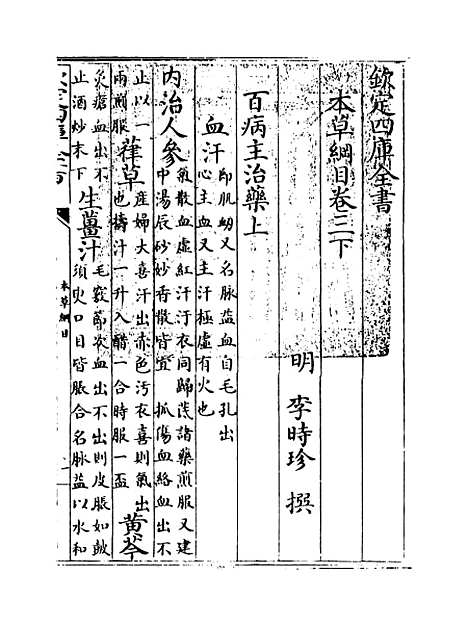 欽定四庫全書
本草綱目卷三下
明 李時珍 撰
百病主治藥上
血汗 即肌衂又名脉溢血自毛孔出
心主血又主汗極虚有火也
内治人參 氣散血虚紅汗汙衣同歸茂諸藥煎服又建
中湯辰砂妙香散皆宜 抓傷血絡血出不
止以一
兩煎服 葎草 産婦大喜汗出赤色汚衣喜則氣出
也擣汁一升入醋一合時服一盃 黄芩
灸瘡血出不
止酒炒末下 生薑汁 毛竅節次血出不出則皮脹如鼓
須臾口目皆脹合名脉溢以水和
本草綱目